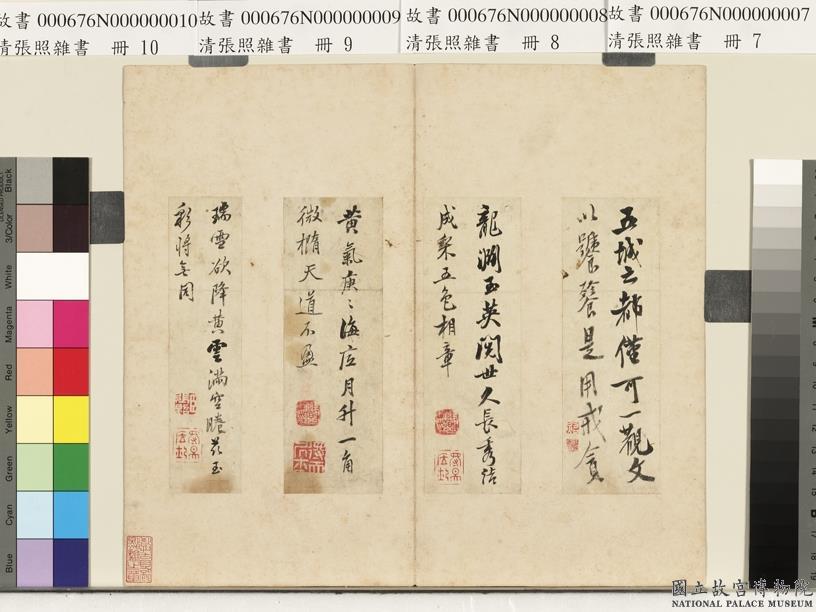 故書 000676N000000010
清張照雜書 冊 10
故書 000676N000000009
清張照雜書 冊 9
故書 000676N000000008
清張照雜書 冊 8
故書 000676N000000007
清張照雜書 冊 7
五城之都僅可一觀文
以饕餮是用戒貪
龍澗玉英閱世久長秀結
成采五色相章
黃氣庚〻海店月升一角
微橢天道不盈
瑞雲欲降黃雲滿空睠茲玉
彩將無同
Black
3/Color
White
Magenta
Red
Yellow
Green
Cyan
Blue
國立故宮博物院
NATIONAL PALACE MUSEUM